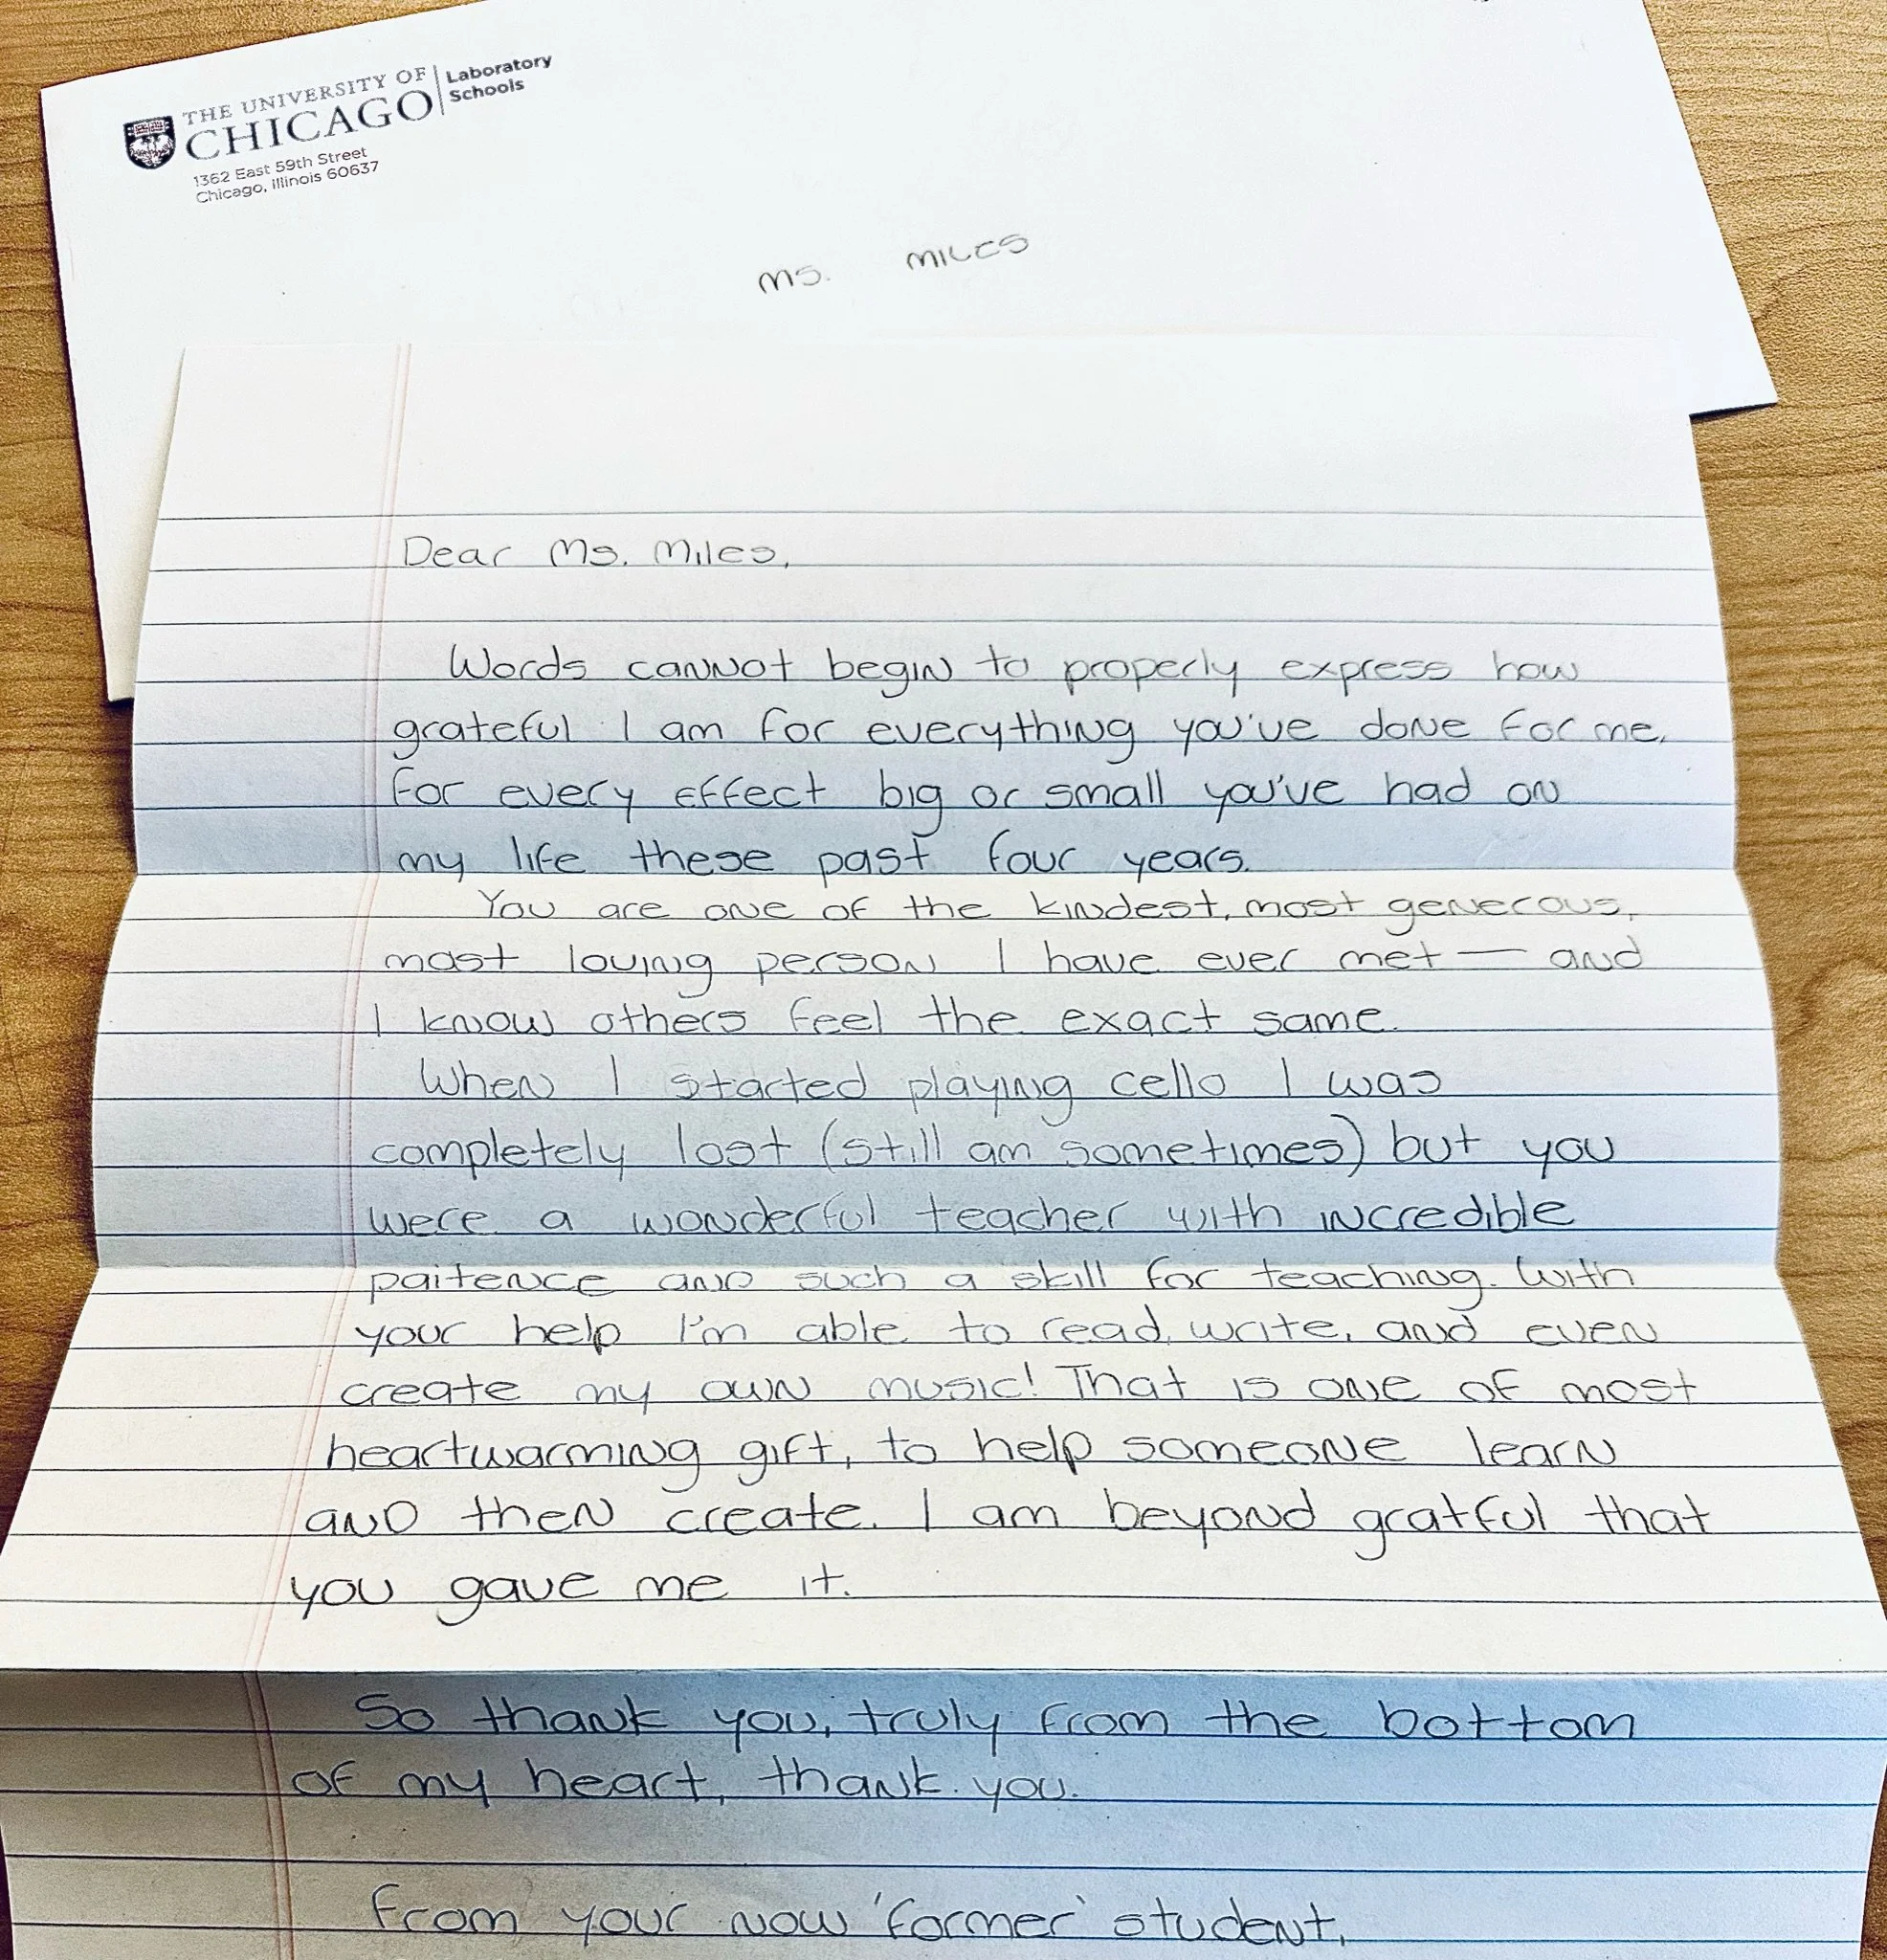 THE UNIVERSITY OF
CHICAGO
Laboratory
Schools
1362 East 59th Street
Chicago, Illinois 60637
MS. MILES
Dear Ms. Miles,
Words cannot begin to properly express how
grateful I am for everything you've done for me,
for every effect big or small you've had on
my life these past four years.
You are one of the kindest, most generous,
most loving person I have ever met — and
I know others feel the exact same.
When I started playing cello I was
completely lost (still am sometimes) but you
were a wonderful teacher with incredible
paitence and such a skill for teaching. With
your help I'm able to read, write, and even
create my own music! That is one of most
heartwarming gift, to help someone learn
and then create. I am beyond gratful that
you gave me it.
So thank you, truly from the bottom
of my heart, thank you.
From your now 'former' student,